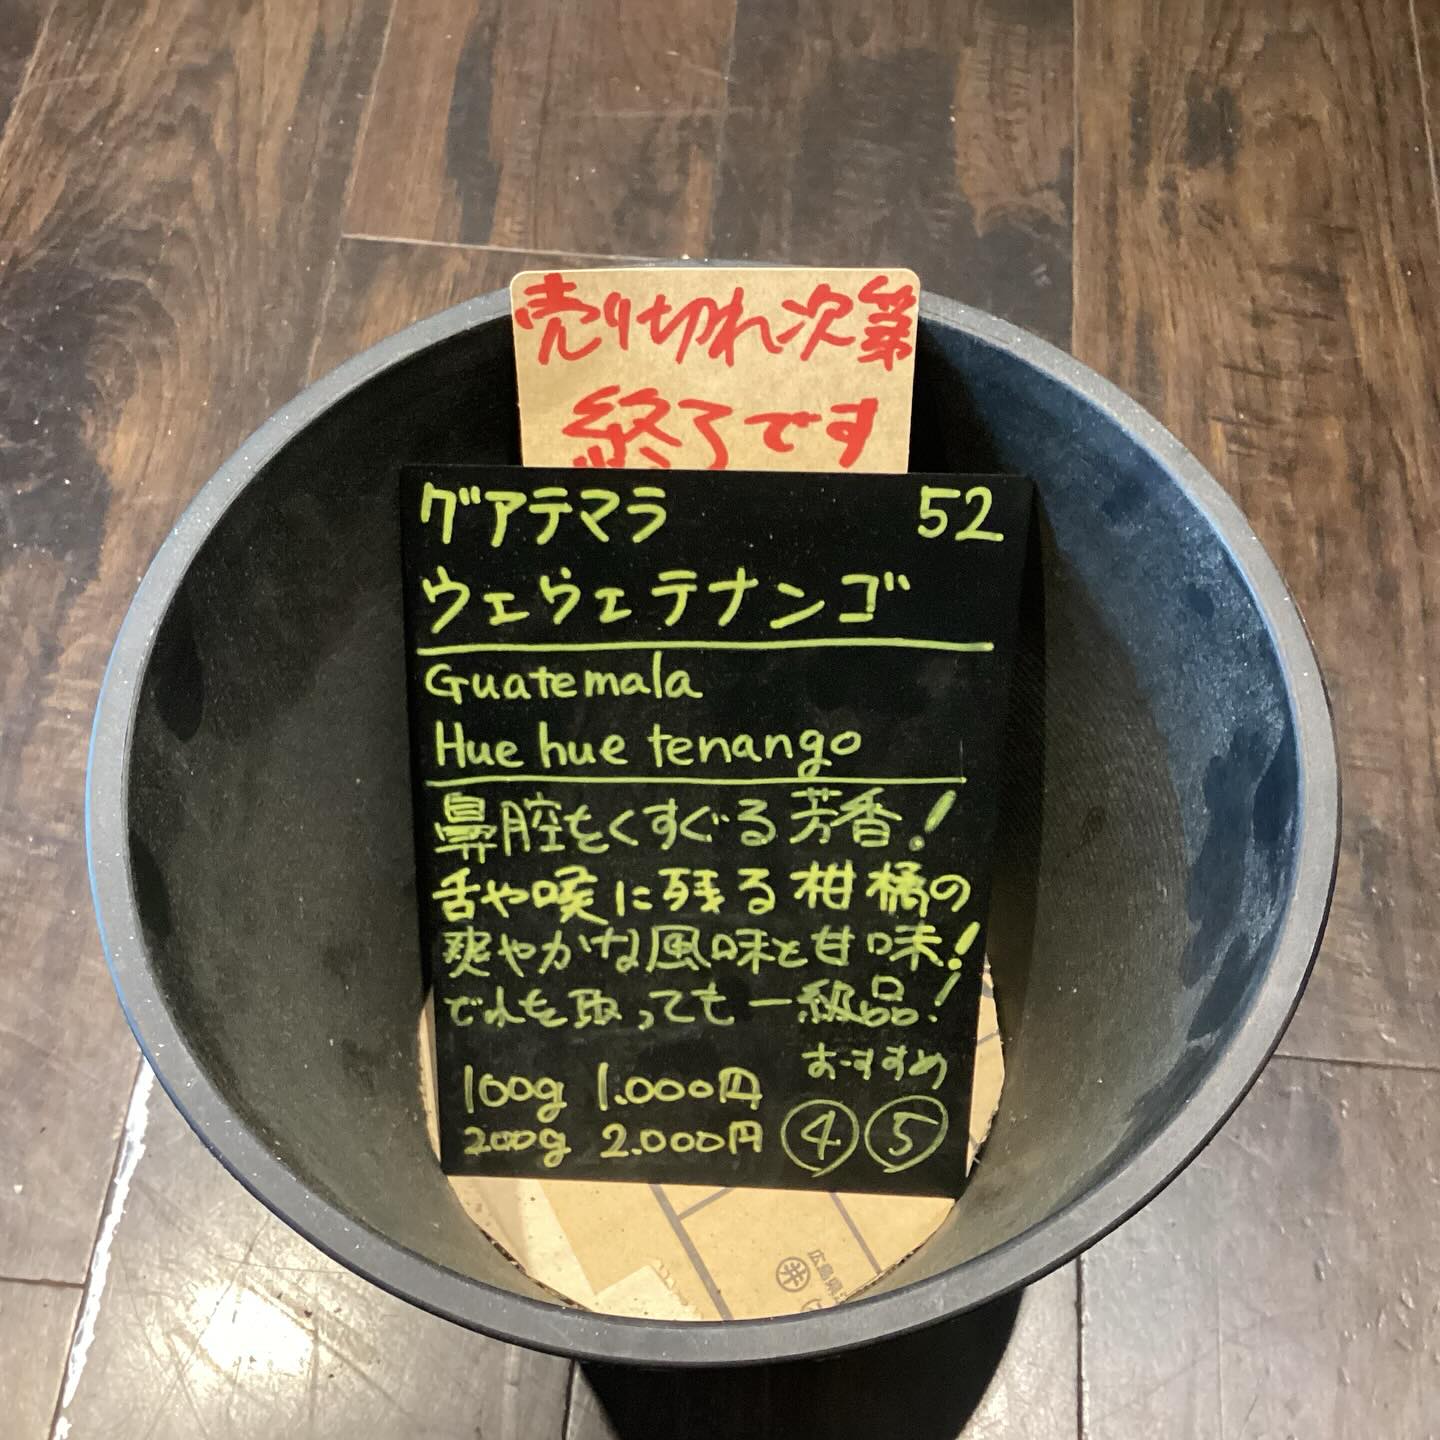 売り切れ次第
終了です
グアテマラ 52
ウェウェテナンゴ
Guatemala
Hue hue tenango
鼻腔をくすぐる芳香!
舌や喉に残る柑橘の
爽やかな風味と甘味!
どれを取っても一級品!
おすすめ
100g 1.000円
200g 2.000円 ④ ⑤
広島県
井